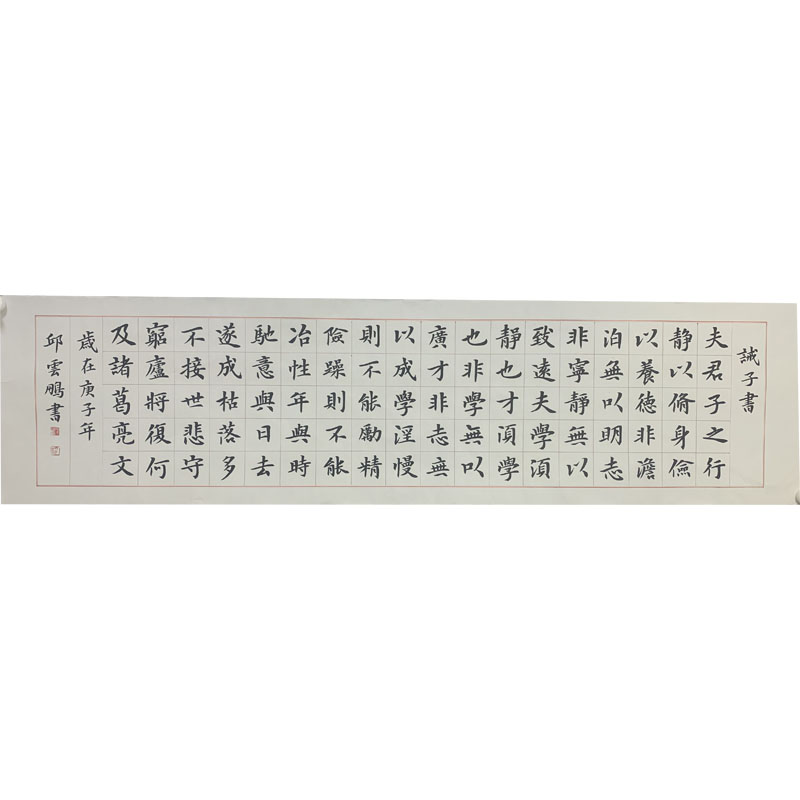 誡子書
夫君子之行
静以脩身儉
以養德非澹
泊無以明志
非寧靜無以
致遠夫學須
靜也才須學
也非學無以
廣才非志無
以成學淫慢
則不能勵精
險躁則不能
冶性年與時
馳意與日去
遂成枯落多
不接世悲守
窮廬將復何
及諸葛亮文
歲在庚子年
邱雲鵬書